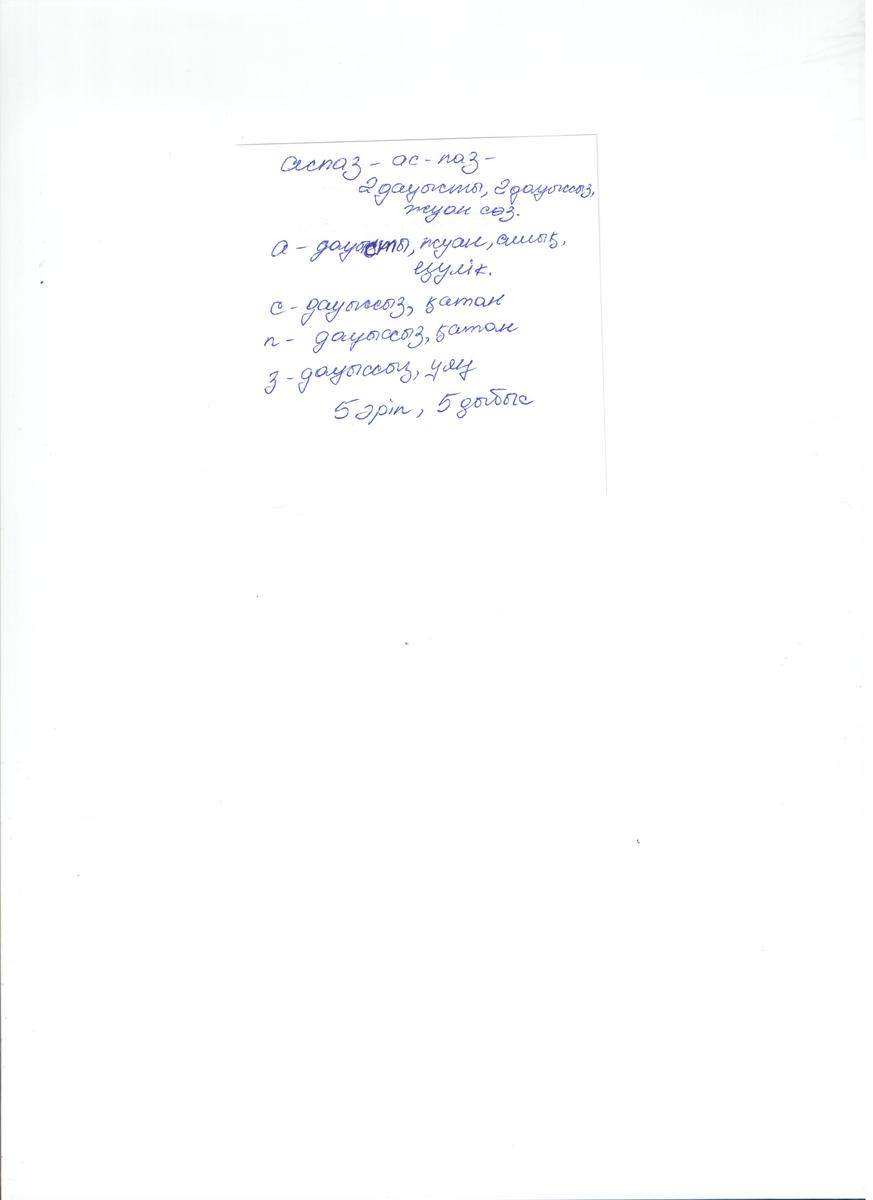 Аспаз – ас-паз –
2 дауысты, 2 дауыссыз,
жуан сөз.
а – дауысты, жуан, ашық,
езулік.
с – дауыссыз, қатаң
п – дауыссыз, қатаң
з – дауыссыз, ұяң
5 әріп, 5 дыбыс